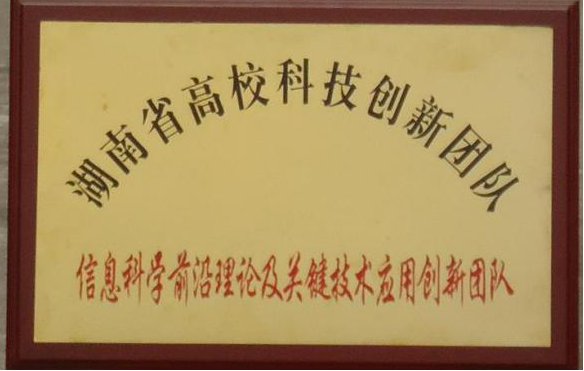 湖南省高校科技创新团队
信息科学前沿理论及关键技术应用创新团队